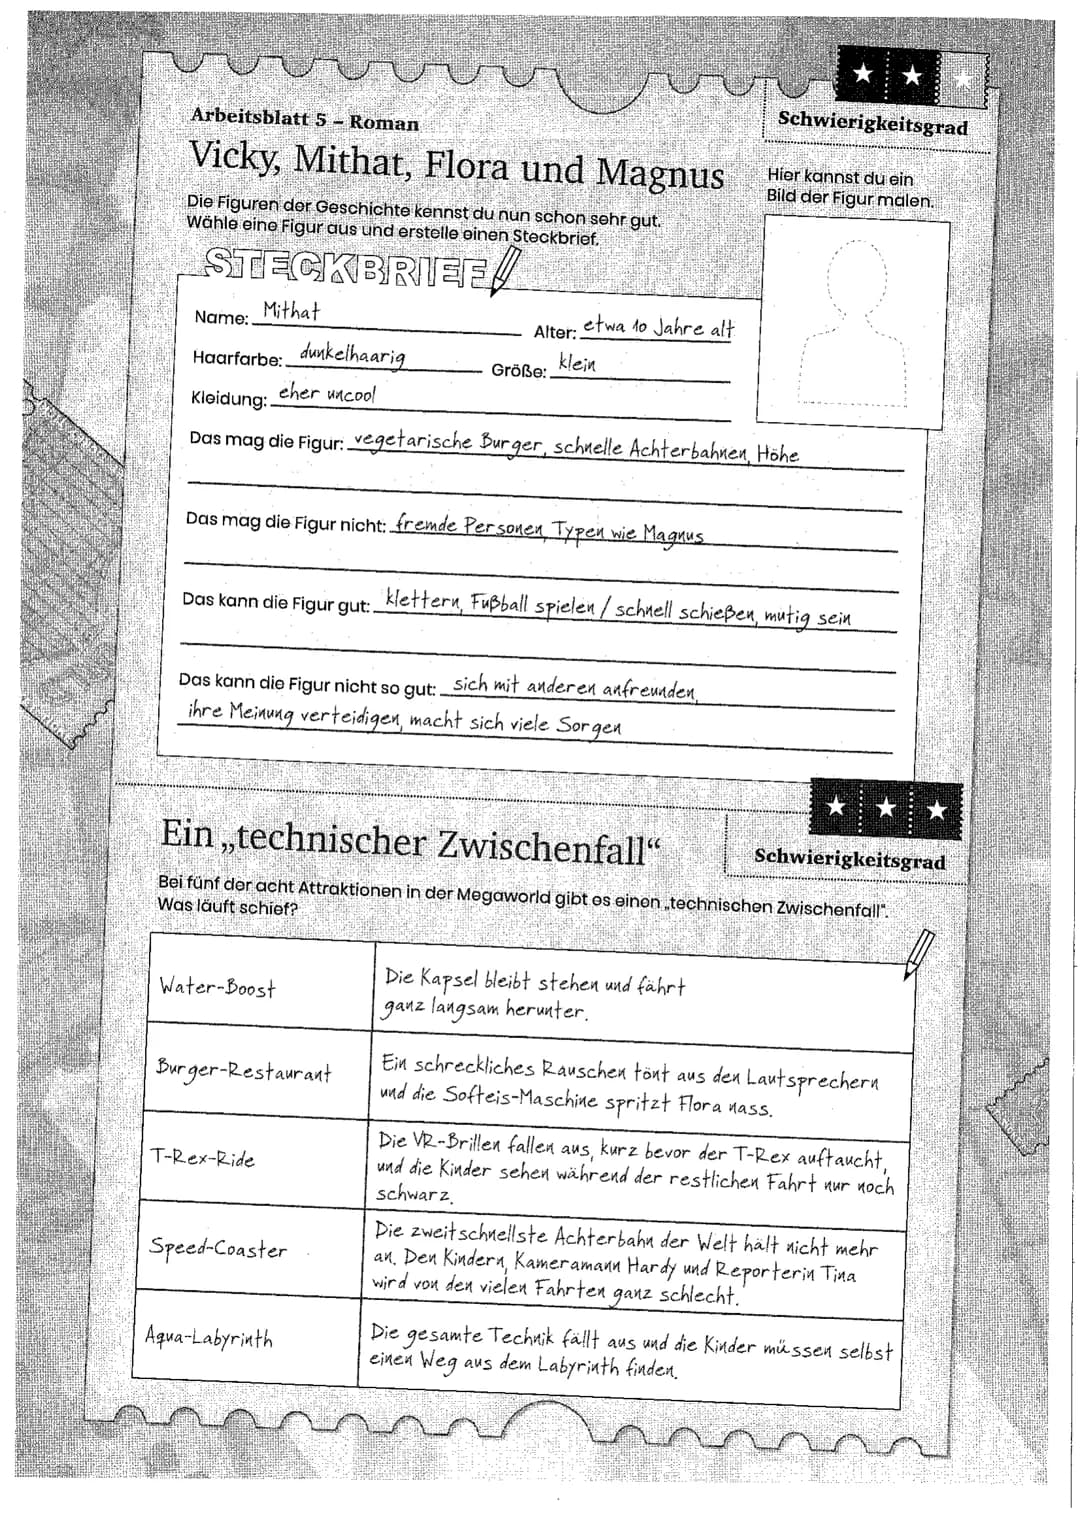 Schwierigkeitsgrad
Arbeitsblatt 5 – Roman
Vicky, Mithat, Flora und Magnus
Die Figuren der Geschichte kennst du nun schon sehr gut.
Wähle eine Figur aus und erstelle einen Steckbrief.
Hier kannst du ein
Bild der Figur malen.
STECKBRIEF
Name: Mithat Alter: etwa 10 Jahre alt
Haarfarbe: dunkelhaarig Größe: klein
Kleidung: eher uncool
Das mag die Figur: vegetarische Burger, schnelle Achterbahnen, Höhe
Das mag die Figur nicht: fremde Personen, Typen wie Magnus
Das kann die Figur gut: klettern, Fußball spielen / schnell schießen, mutig sein
Das kann die Figur nicht so gut: sich mit anderen anfreunden,
ihre Meinung verteidigen, macht sich viele Sorgen
Schwierigkeitsgrad
Ein „technischer Zwischenfall“
Bei fünf der acht Attraktionen in der Megaworld gibt es einen „technischen Zwischenfall“.
Was läuft schief?
Water-Boost
Die Kapsel bleibt stehen und fährt
ganz langsam herunter.
Burger-Restaurant
Ein schreckliches Rauschen tönt aus den Lautsprechern
und die Softeis-Maschine spritzt Flora nass.
T-Rex-Ride
Die VR-Brillen fallen aus, kurz bevor der T-Rex auftaucht,
und die Kinder sehen während der restlichen Fahrt nur noch
schwarz.
Speed-Coaster
Die zweitschnellste Achterbahn der Welt hält nicht mehr
an. Den Kindern, Kameramann Hardy und Reporterin Tina
wird von den vielen Fahrten ganz schlecht.
Aqua-Labyrinth
Die gesamte Technik fällt aus und die Kinder müssen selbst
einen Weg aus dem Labyrinth finden.